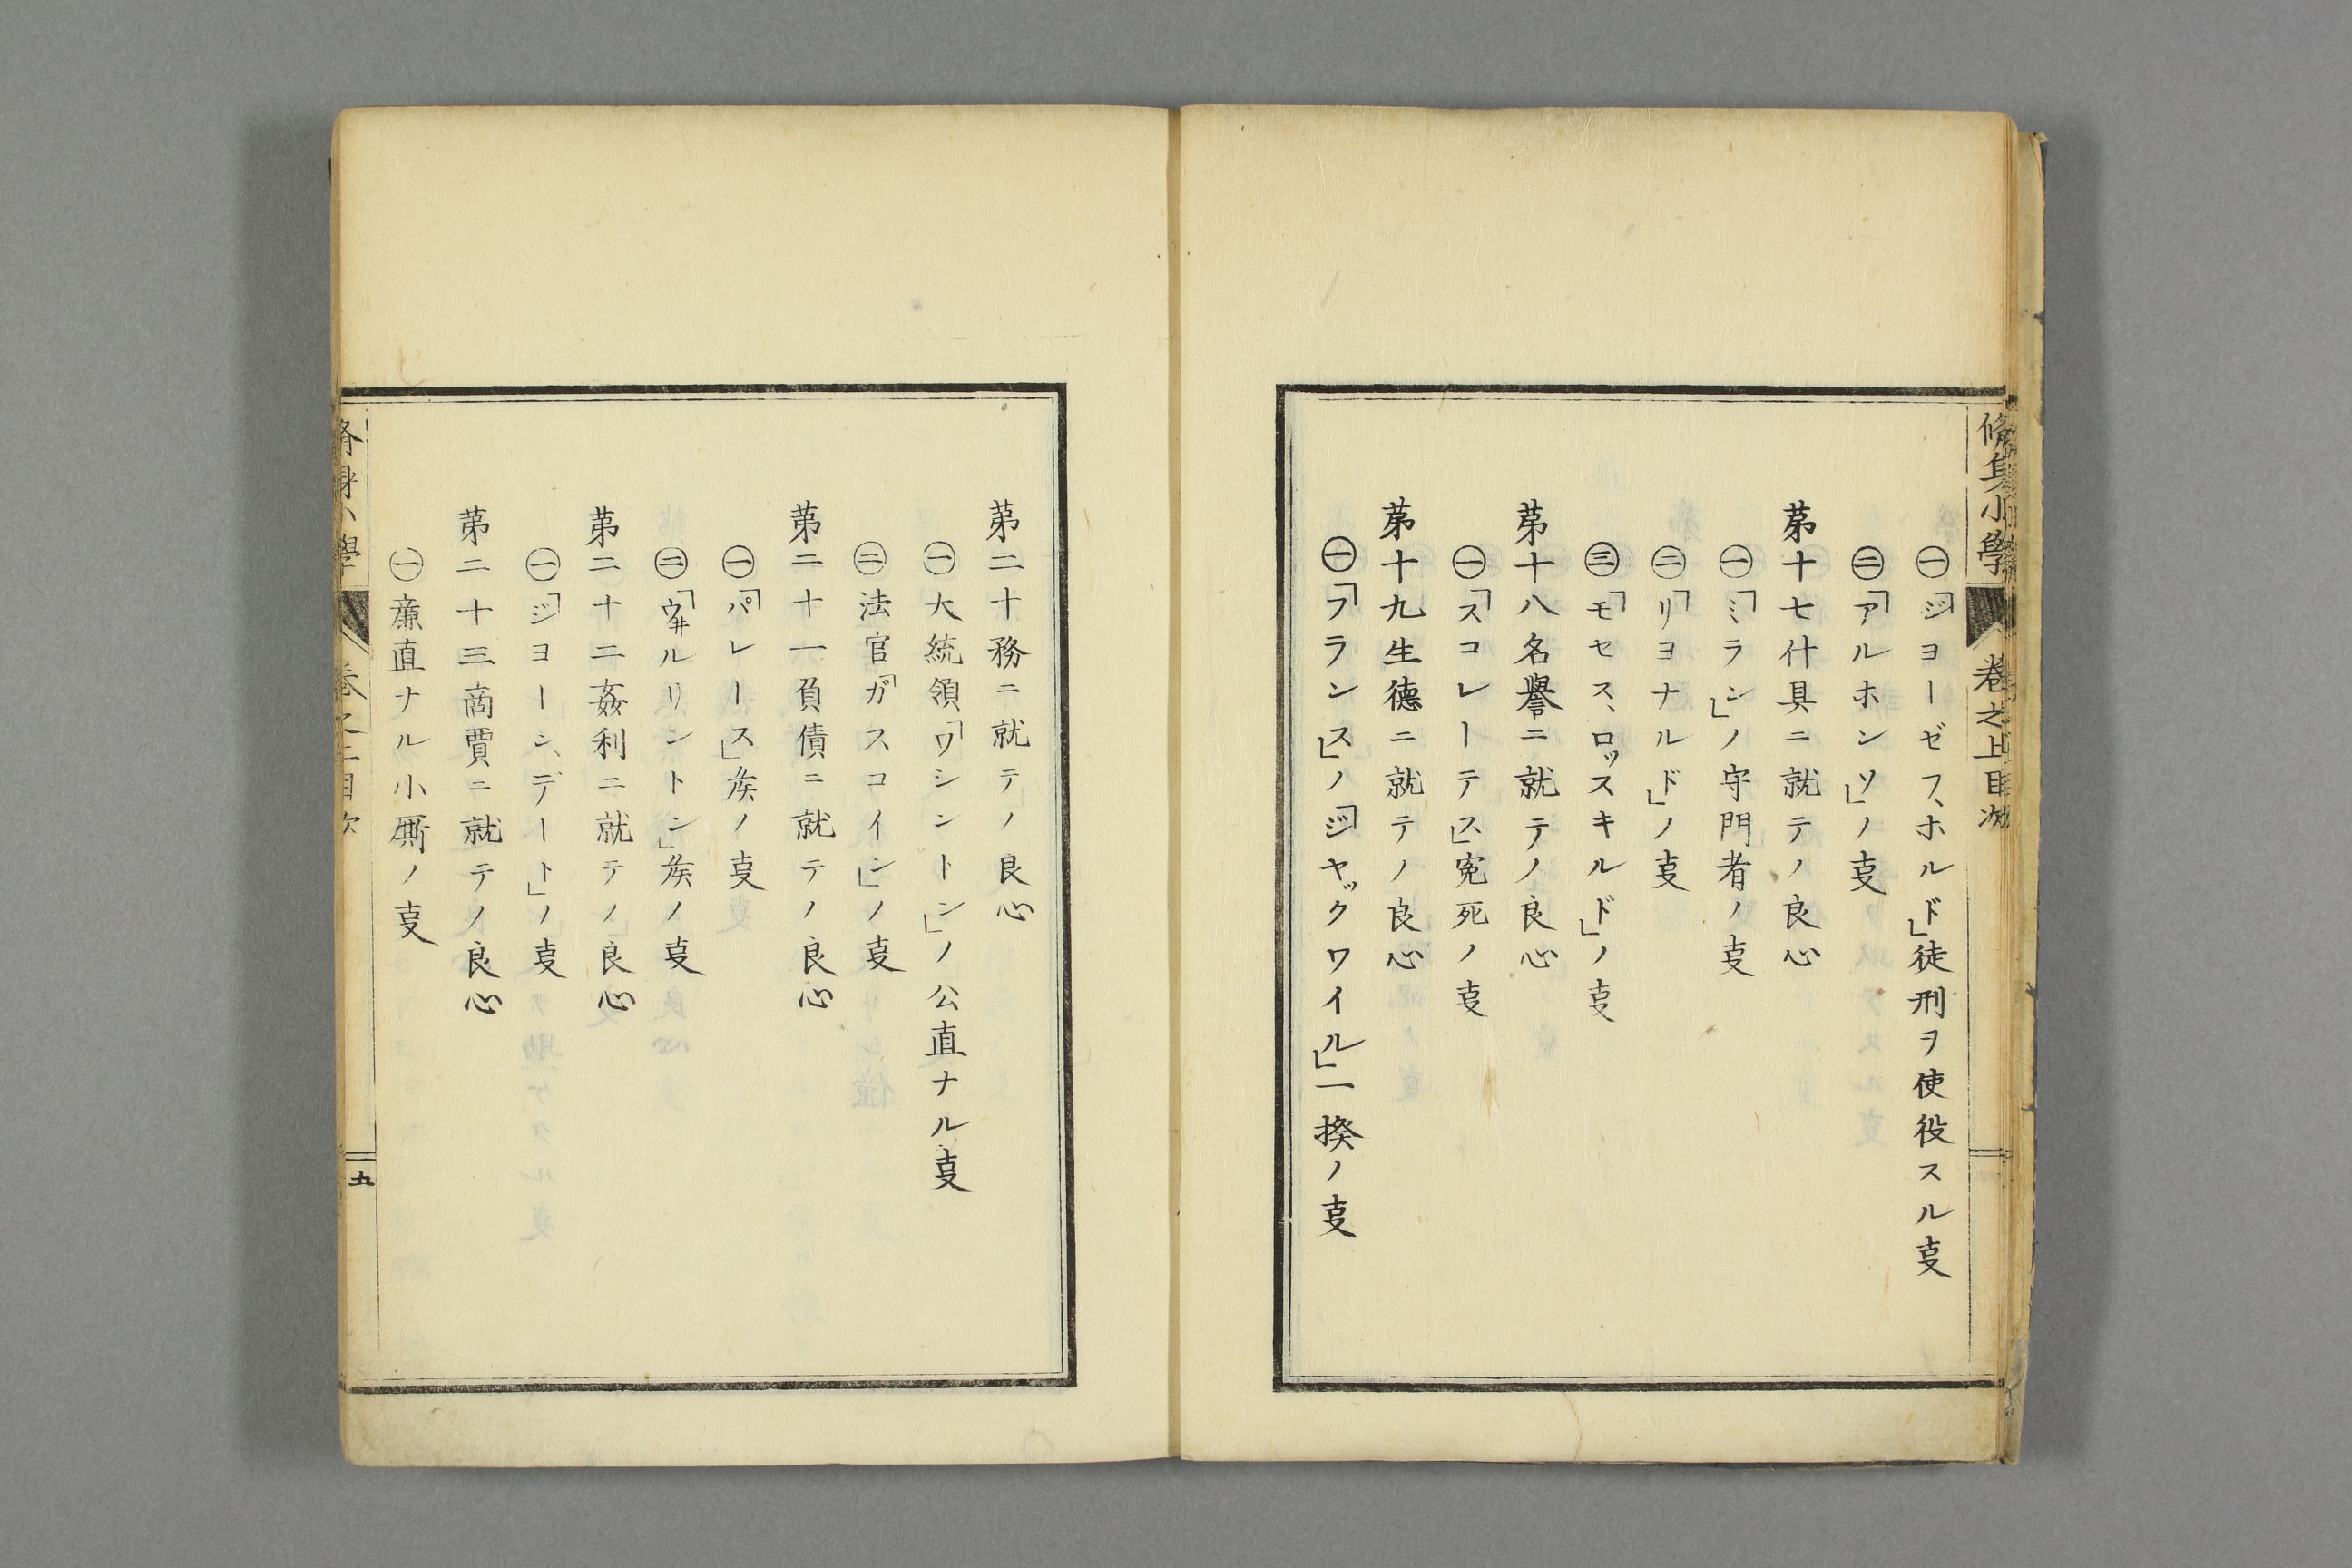 脩身小學 卷之上目次
㊀「ジヨーゼフ、ホルド」徒刑ヲ使役スル㕝
㊁「アルホンソ」ノ㕝
苐十七什具ニ就テノ良心
㊀「ミラン」ノ守門者ノ㕝
㊁「リヨナルド」ノ㕝
㊂「モセス、ロッスキルド」ノ㕝
苐十八名譽ニ就テノ良心
㊀「スコレーテス」寃死ノ㕝
苐十九生德ニ就テノ良心
㊀「フランス」ノ「ジヤックワイル」一揆ノ㕝
苐二十務ニ就テノ良心
㊀大統領「ワシントン」ノ公直ナル㕝
㊁法官「ガスコイン」ノ㕝
苐二十一負債ニ就テノ良心
㊀「パレース」矦ノ㕝
㊁「ウ井ルリントン」矦ノ㕝
苐二十二姦利ニ就テノ良心
㊀「ジヨーン、デート」ノ㕝
苐二十三商賈ニ就テノ良心
㊀廉直ナル小厮ノ㕝
脩身小學 卷之上目次 五